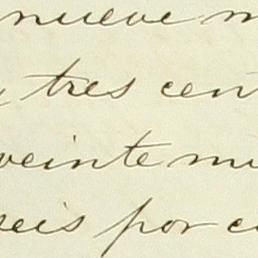 nueve m
y tres cen
veinte mi
seis por c